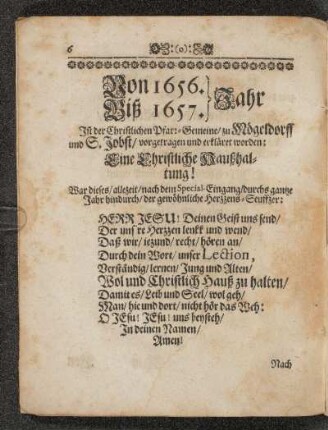 6 :(o):
Von 1656. } Jahr
Biß 1657.
Ist der Christlichen Pfarr-Gemeine/ zu Mögeldorff
und S. Jobst/ vorgetragen und erkläret worden:
Eine Christliche Haußhal-
tung!
War dieses/ allezeit/ nach dem Special-Eingang/ durchs gantze
Jahr hindurch/ der gewöhnliche Hertzens-Seufftzer:
HERR JESU! Deinen Geist uns send/
Der unsre Hertzen lenkt und wend/
Daß wir/ iezund/ recht/ hören an/
Durch dein Wort/ unser Lection,
Verständig/ lernen/ Jung und Alten/
Wol und Christlich Hauß zu halten/
Damit es/ Leib und Seel/ wol geh/
Man/ hie und dort/ nicht hör das Weh:
O JEsu! JEsu! uns beysteh/
In deinen Namen/
Amen!
Nach